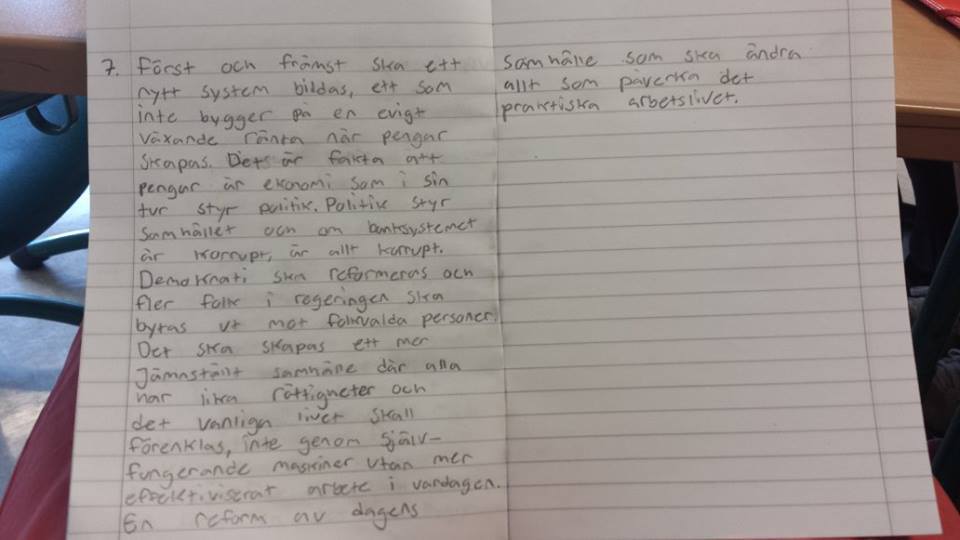 7. Först och främst ska ett
nytt system bildas, ett som
inte bygger på en evigt
växande ränta när pengar
skapas. Det är fakta att
pengar är ekonomi som i sin
tur styr politik. Politik styr
samhället och om banksystemet
är korrupt, är allt korrupt.
Demokrati ska reformeras och
fler folk i regeringen ska
bytas ut mot folkvalda personer.
Det ska skapas ett mer
Jämnställt samhälle där alla
har lika rättigheter och
det vanliga livet skall
förenklas, inte genom själv-
fungerande maskiner utan mer
effektiviserat arbete i vardagen.
En reform av dagens
samhälle som ska ändra
allt som påverka det
praktiska arbetslivet.